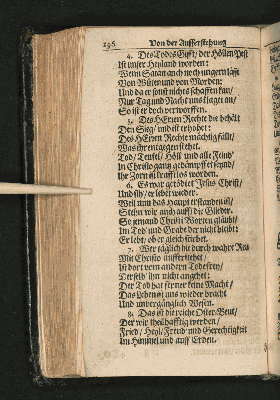 196 Von der Aufferstehung
4. Des Todes Gifft / der Höllen Pest
Ist unser Heyland worden:
Wenn Satan auch noch ungern läßt
Von Wüten und von Morden:
Und da er sonst nichts schaffen kan /
Nur Tag und Nacht uns klaget an /
So ist er doch verworffen.
5. Des HErren Rechte die behält
Den Sieg / und ist erhöhet:
Des HErren Rechte mächtig fällt /
Was ihr entgegen stehet.
Tod / Teufel / Höll und alle Feind'
In Christo gantz gedämpfft seynd /
Ihr Zorn ist krafftloß worden.
6. Es war getödtet Jesus Christ /
Und sih / er lebet wieder.
Weil nun das Haupt erstanden ist /
Stehn wir auch auff / die Glieder.
So jemand Christi Worten gläubt /
Im Tod und Grabe der nicht bleibt:
Er lebt / ob er gleich stirbet.
7. Wer täglich hie durch wahre Reu
Mit Christo aufferstehet /
Ist dort vom andern Tode frey /
Derselb' ihn nicht angehet:
Der Tod hat ferner keine Macht /
Das Leben ist uns wieder bracht
Und unvergänglich Wesen.
8. Das ist die reiche Oster-Beut /
Der wir theilhafftig werden /
Fried / Heyl / Freud und Gerechtigkeit
Im Himmel und auff Erden.